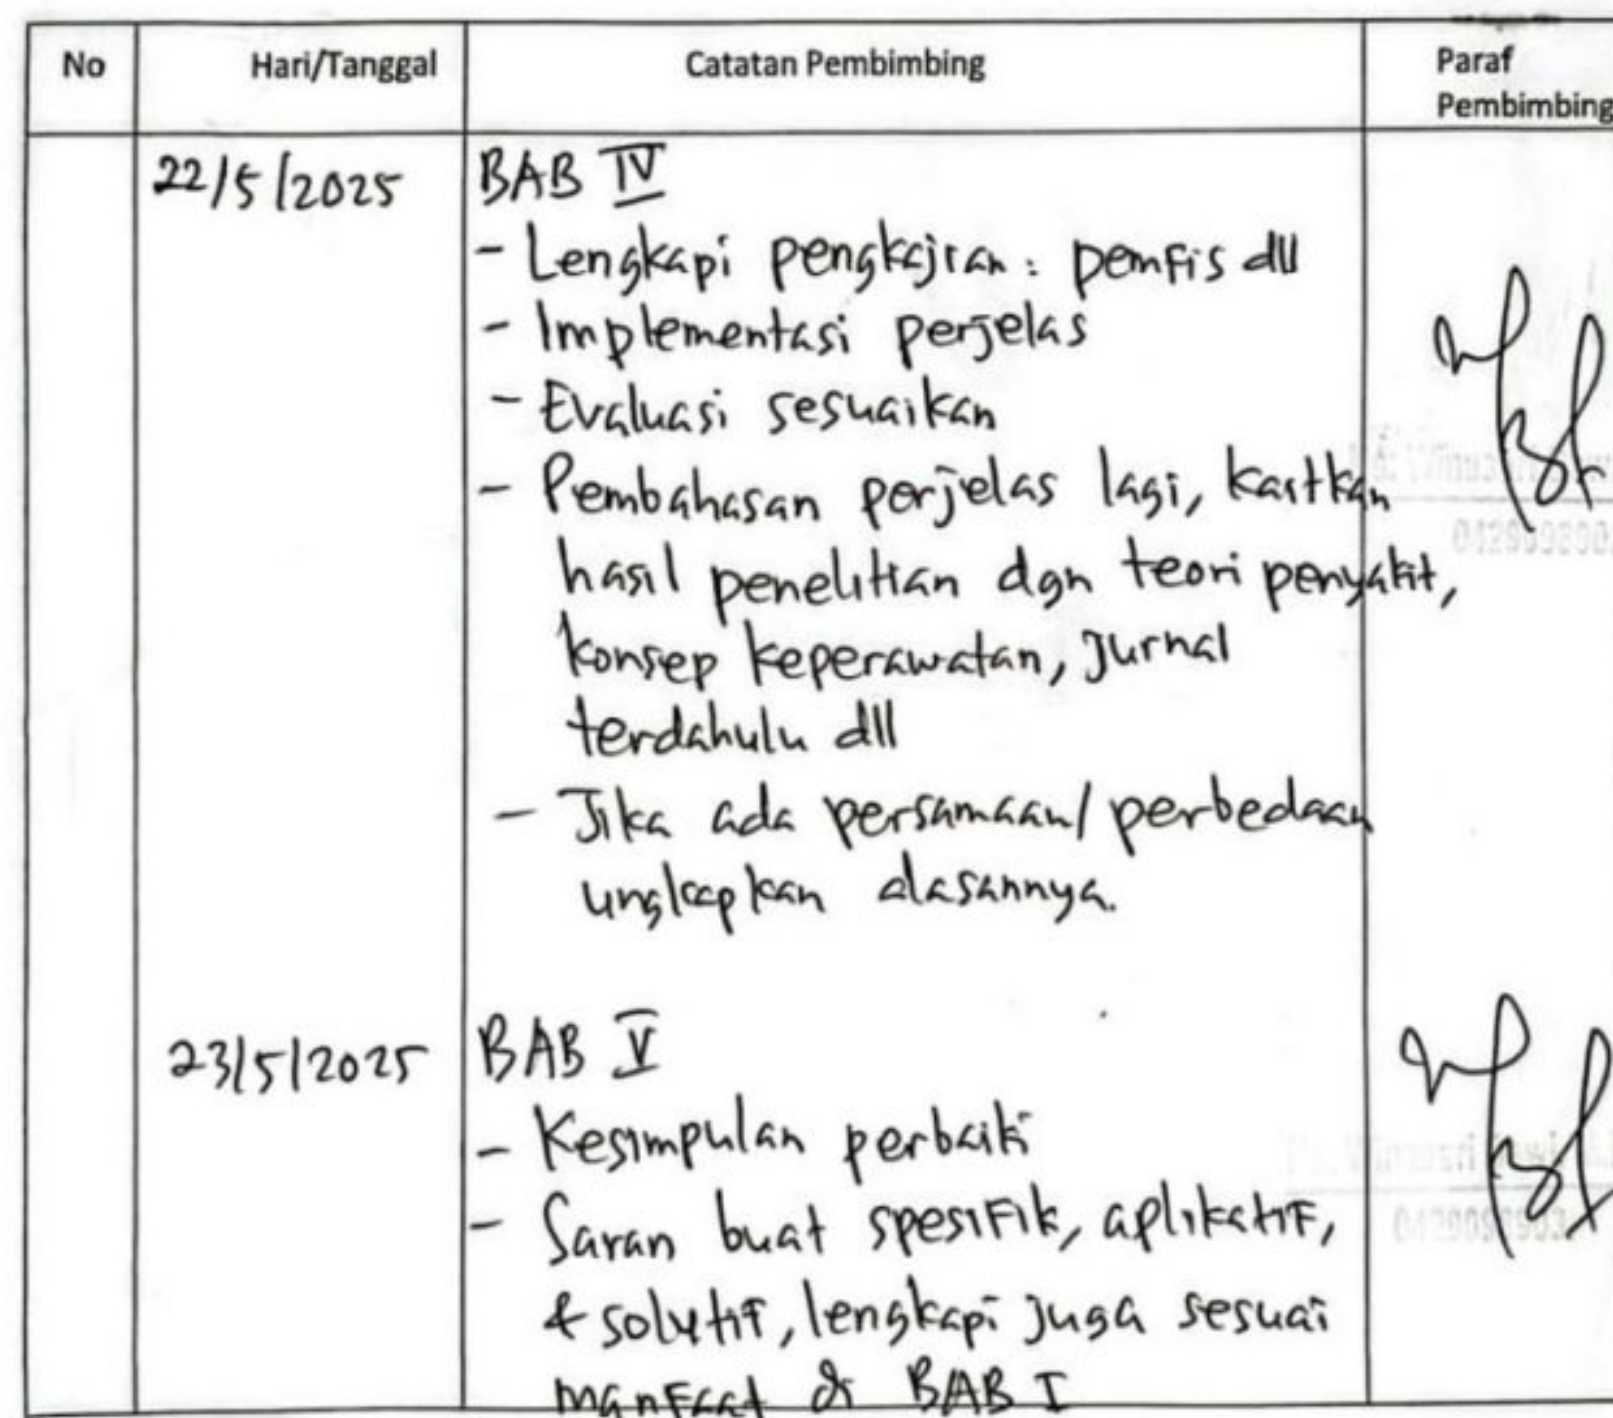 No Hari/Tanggal Catatan Pembimbing Paraf Pembimbing
22/5/2025 BAB IV
- Lengkapi pengkajian : pemfis dll
- Implementasi perjelas
- Evaluasi sesuaikan
- Pembahasan perjelas lagi, kaitkan
hasil penelitian dgn teori penyakit,
konsep keperawatan, jurnal
terdahulu dll
- Jika ada persamaan/ perbedaan
ungkapkan alasannya.
23/5/2025 BAB V
- Kesimpulan perbaiki
- Saran buat spesifik, aplikatif,
& solutif, lengkapi juga sesuai
manfaat di BAB I